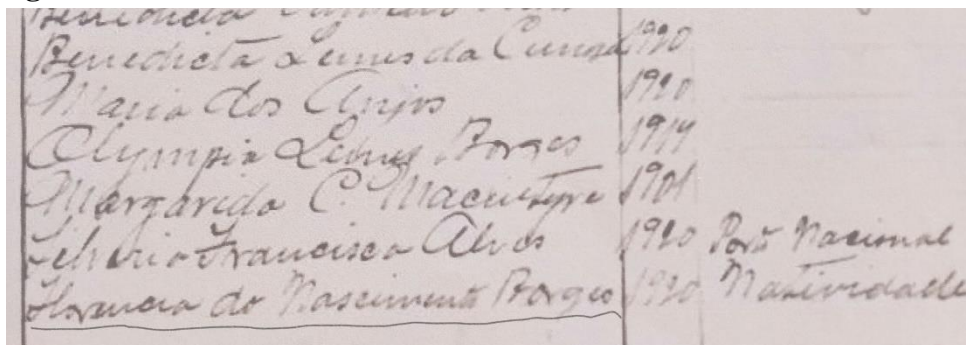 Benedicta
Benedicta Lemes da Cunha 1920
Maria dos Anjos 1920
Olympia Lemes Borges 1914
Margarida C. Macintyre 1901
Francisca Alves 1920 Porto Nacional
Florencia do Nascimento Borges 1920 Natividade